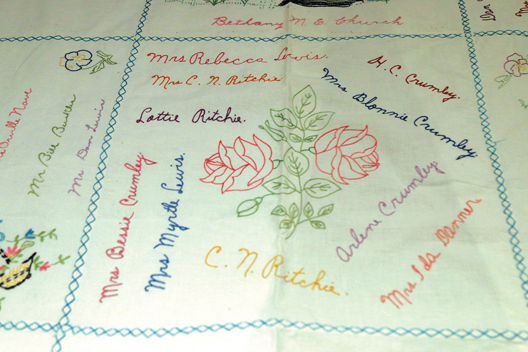 Bethany M E Church
Mrs Rebecca Lewis.
Mrs C. N. Ritchie
Lottie Ritchie.
H. C. Crumley.
Mrs Blonnie Crumley
Mrs Bessie Crumley
Mrs Myrtle Lewis.
C. N. Ritchie.
Arlene Crumley
Mrs Ida Danner
Mr Bee
Mr Dave Lewis